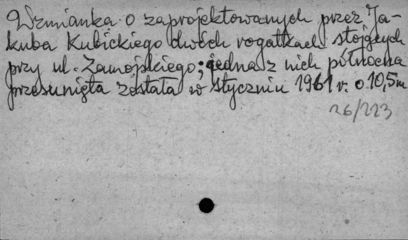 Wzmianka o zaprojektowanych przez Ja-
kuba Kubickiego dwóch rogatkach stojących
przy ul. Zamojskiego; jedna z nich północna
przesunięta została w styczniu 1961 r. o 10,5 m
26/223